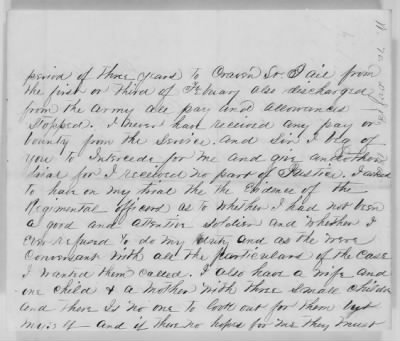 period of three years to Craven Co. Jail from
the first or third of Febuary also discharged
from the army all pay and allowances
Stopped. I never have received any pay or
bounty from the Service. and Sir I beg of
you to Intercede for me and give another
trial for I received no part of Justice. I asked
to have on my trial the the Evidence of the
Regimental officers as to whether I had not been
a good and attentive Soldier and whether I
Ever refused to do my duty and as the were
Conversant with all the particulars of the case
I wanted them called. I also have a wife and
one child & a mother with three small children
and there Is no one to look out for them but
myself and if there no hopes for me they must